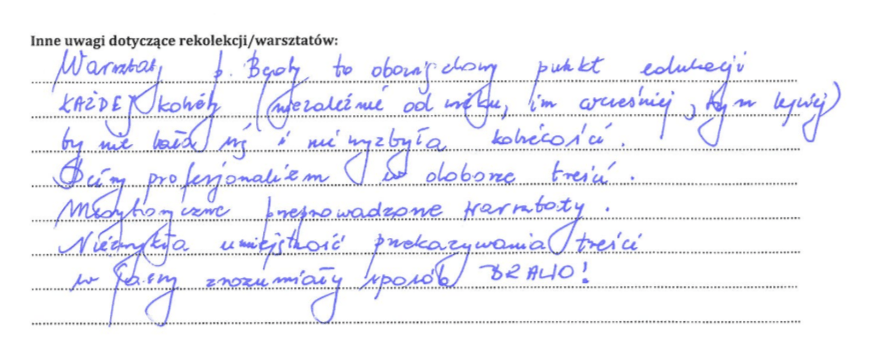 Inne uwagi dotyczące rekolekcji/warsztatów:
Warsztaty p. to obowiązkowy punkt edukacji
KAŻDEJ kobiety (niezależnie od wieku, im wcześniej, tym lepiej)
by nie bała się i nie wyzbyła kobiecości.
profesjonalizm w doborze treści.
przeprowadzone warsztaty.
Niezwykła umiejętność przekazywania treści
w jasny zrozumiały sposób BRAWO!